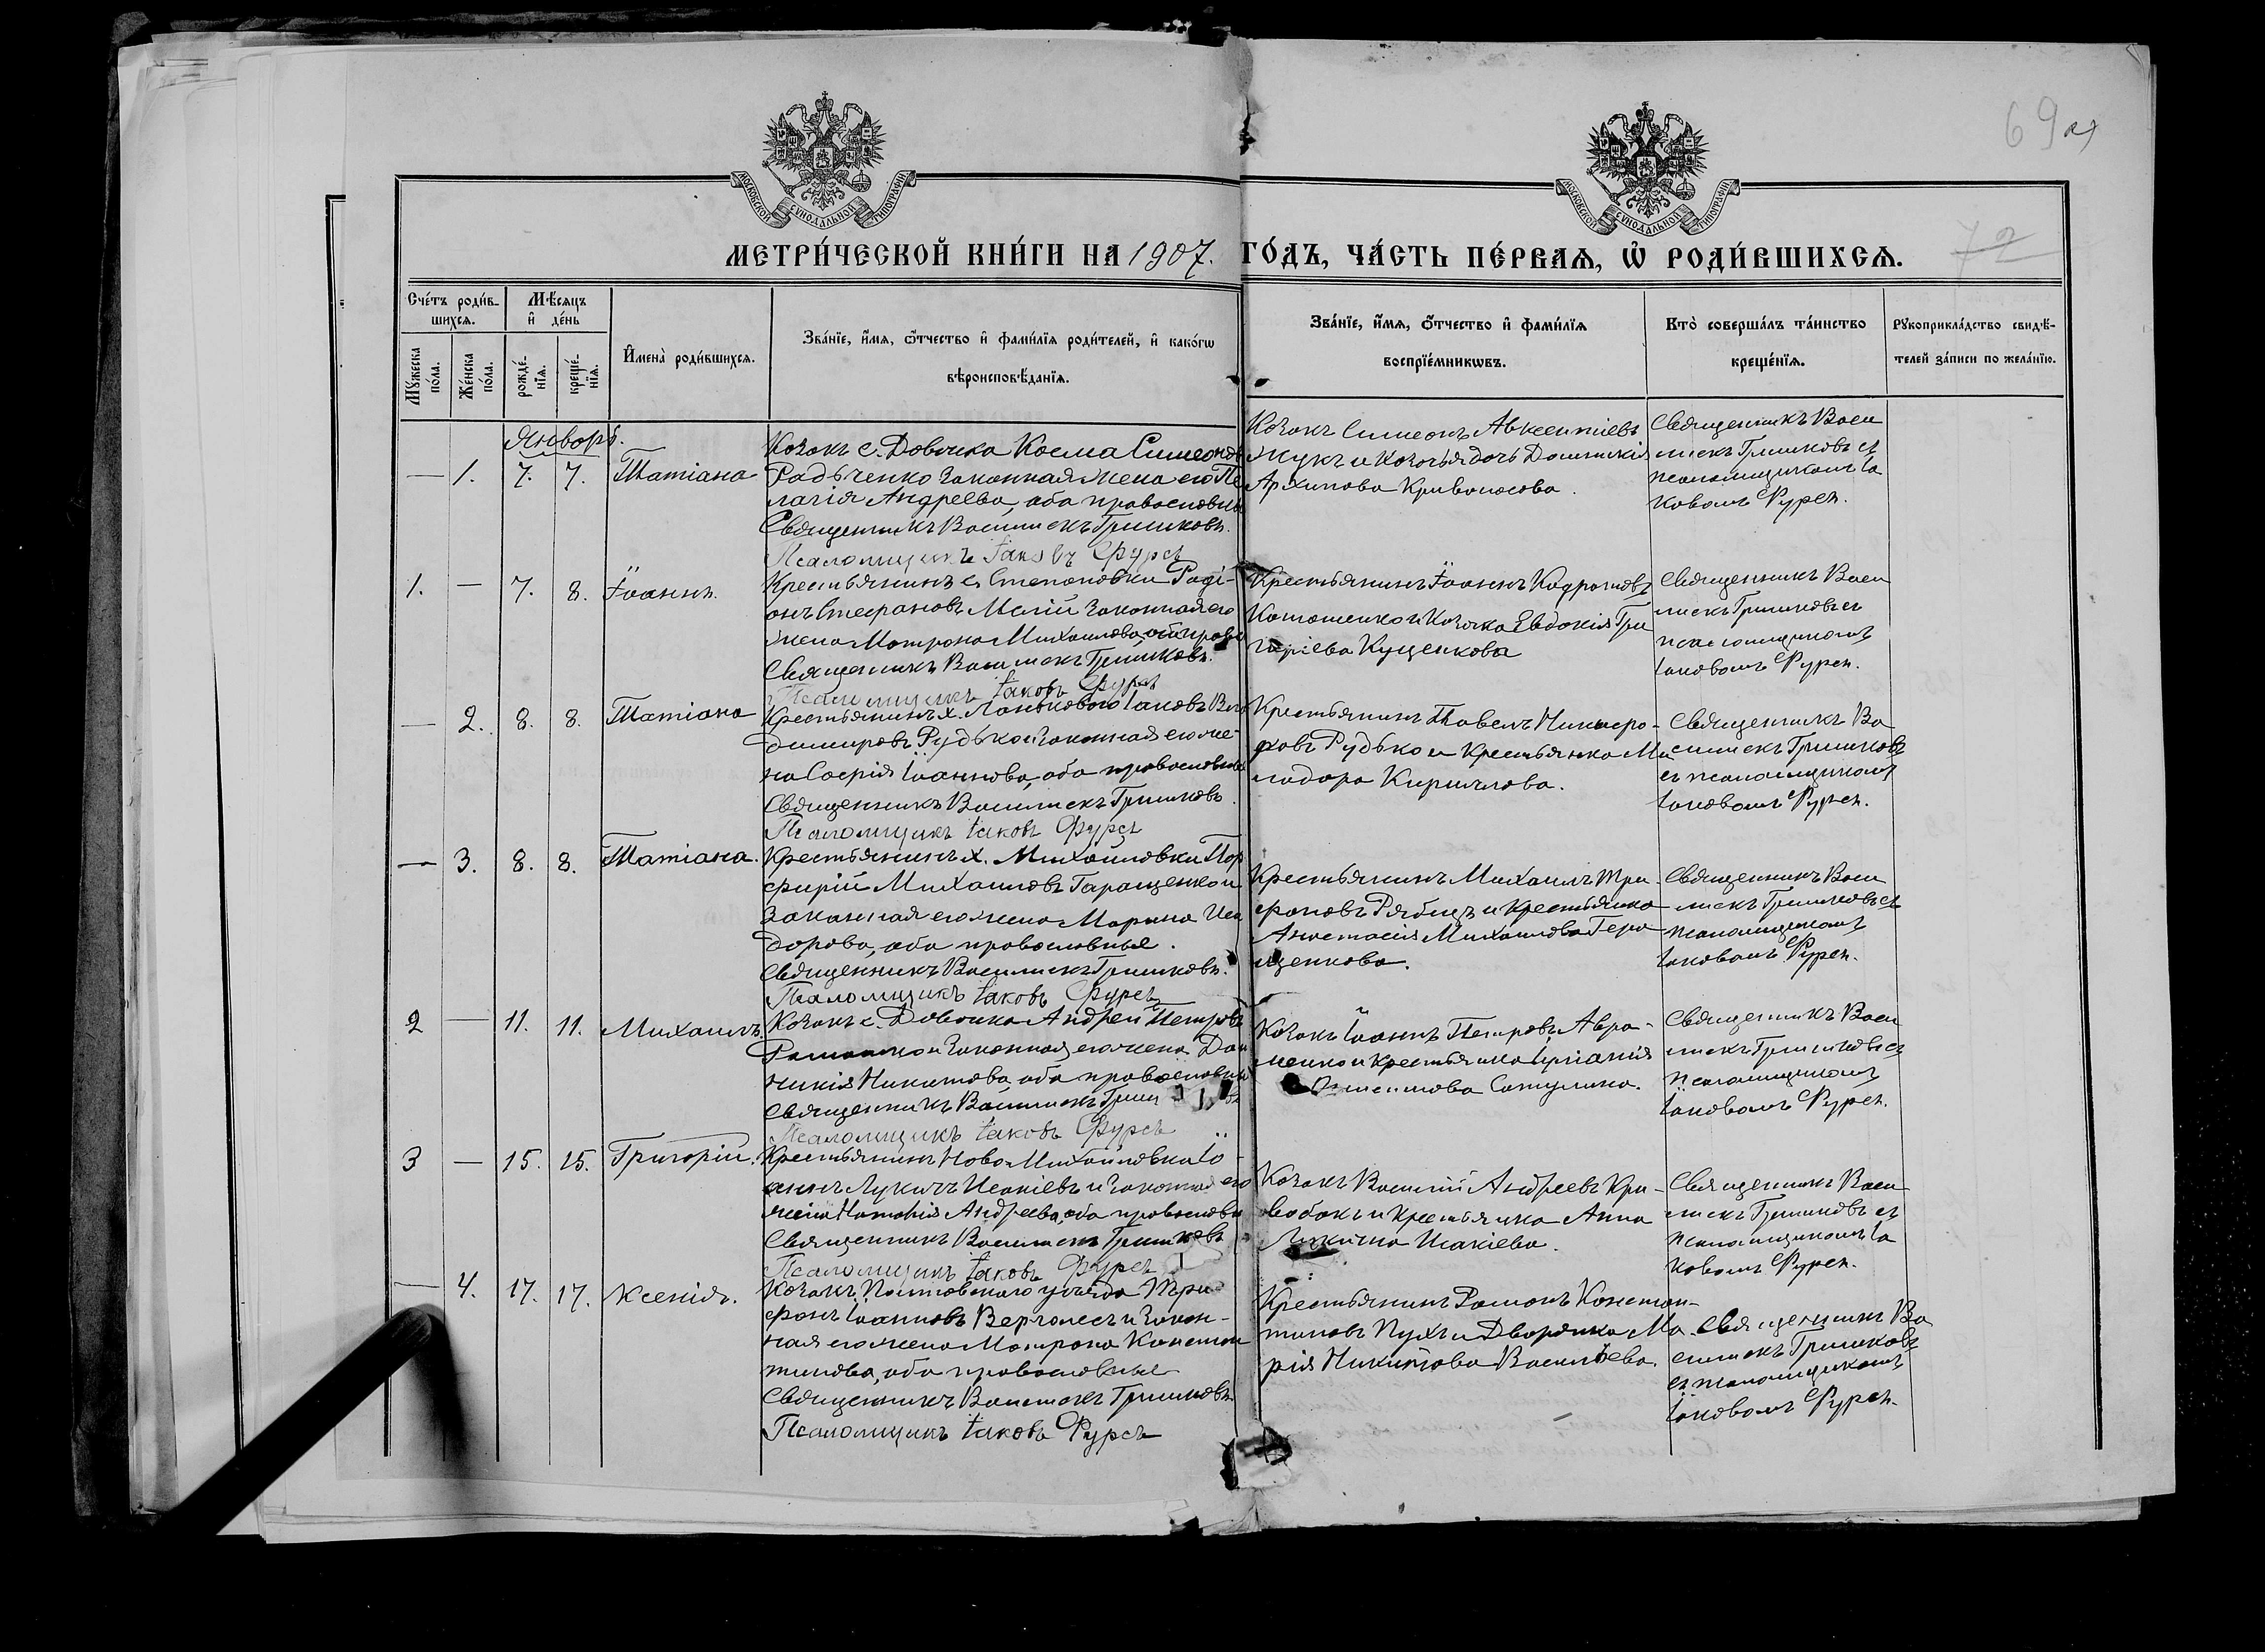 69
МОСКОВСКОЙ СѴНОДАЛЬНОЙ ТИПОГРАФІИ
МОСКОВСКОЙ СѴНОДАЛЬНОЙ ТИПОГРАФІИ
МЕТРИ́ЧЕСКОЙ КНИ́ГИ НА 1907. ГО́ДЪ, ЧА́СТЬ ПЕ́РВАѦ, Ѡ҆ РОДИ́ВШИХСѦ.
72
Сче́тъ роди́в-
шихсѧ.
Мѣ́сяцъ
и҆ де́нь
Мꙋ́жеска
по́ла.
Же́нска
по́ла.
рожде́-
нїѧ.
креще́-
нїѧ.
И҆мена̀ роди́вшихсѧ.
Зва́нїе, и҆́мѧ, ѻ҆́тчество и҆ фами́лїѧ роди́телей, и҆ како́гѡ
вѣроисповѣ́данїѧ.
Зва́нїе, и҆́мѧ, ѻ҆́тчество и҆ фами́лїѧ
воспрїе́мникѡвъ.
Кто̀ соверша́лъ та́инство
креще́нїѧ.
Рꙋкоприкла́дство свидѣ́-
телей за́писи по жела́нїю.
Январь.
— 1. 7. 7. Татіана
Козакъ с. Довжика Косма Симеоновъ
Радьченко законная жена его Пе
лагія Андреева, оба православны
Священникъ Василискъ Гришковъ.
Псаломщикъ Іаковъ Фурсъ
Козакъ Симеонъ Авксентіевъ
Жукъ и козачья дочь Домникія
Архипова Кривоносова.
Священникъ Васи
лискъ Гришковъ съ
псаломщикомъ Іа
ковомъ Фурсъ.
1. — 7. 8. Іоаннъ.
Крестьянинъ с. Степановки Роді-
онъ Стефановъ Малій законная его
жена Матрона Михаилова, оба право
Священникъ Василискъ Гришковъ.
Псаломщикъ Іаковъ Фурсъ
Крестьянинъ Іоаннъ Кодратовъ
и Козачка Евдокія Гри
горіева Куценкова
Священникъ Васи
лискъ Гришковъ съ
псаломщикомъ
Іаковомъ Фурсъ.
— 2. 8. 8. Татіана
Крестьянинъ х. Ланькового Іаковъ Вла
димировъ Рудько и законная его же-
на Софія Іоаннова, оба православные
Священникъ Василискъ Гришковъ.
Псаломщикъ Іаковъ Фурсъ
Крестьянинъ Павелъ Никифо-
ровъ Рудько и крестьянка Ми
лодора Кириллова.
Священникъ Ва
силискъ Гришковъ
съ псаломщикомъ
Іаковомъ Фурсъ.
— 3. 8. 8. Татіана.
Крестьянинъ х. Михайловки Пор
фирій Михаиловъ Геращенко и
законная его жена Марина Иси
дорова, оба православные.
Священникъ Василискъ Гришковъ.
Псаломщикъ Іаковъ Фурсъ
Крестьянинъ Михаилъ Три-
фоновъ Рябица и крестьянка
Анастасія Михаилова Гера
щенкова.
Священникъ Васи
лискъ Гришковъ съ
псаломщикомъ
Іаковомъ Фурсъ.
2 — 11. 11. Михаилъ.
Козакъ с. Довжика Андрей Петровъ
и законная его жена Дом
никія Никитова, оба православны
Священникъ Василискъ Гриш
Псаломщикъ Іаковъ Фурсъ
Козакъ Іоаннъ Петровъ Авра-
менко и крестьянка
Сатулина.
Священникъ Васи
лискъ Гришковъ съ
псаломщикомъ
Іаковомъ Фурсъ.
3 — 15. 15. Григорій.
Крестьянинъ Ново-Михайловки Іо-
аннъ Лукичъ Исакіевъ и законная его
жена Наталія Андреева, оба православн
Священникъ Василискъ Гришковъ
Псаломщикъ Іаковъ Фурсъ
Козакъ Василій Андреевъ Кри-
вобокъ и крестьянка Анна
Лукична Исакіева.
Священникъ Васи
лискъ Гришковъ съ
псаломщикомъ Іа
ковомъ Фурсъ.
— 4. 17. 17. Ксенія.
Козакъ уѣзда Три
фонъ Іоанновъ Верголесъ и закон-
ная его жена Матрона Констан
тинова, оба православные
Священникъ Василискъ Гришковъ
Псаломщикъ Іаковъ Фурсъ
Крестьянинъ Романъ Констан-
тиновъ Пухъ и Дворянка Ма
рія Никитова Васильева.
Священникъ Ва
силискъ Гришковъ
съ псаломщикомъ
Іаковомъ Фурсъ.